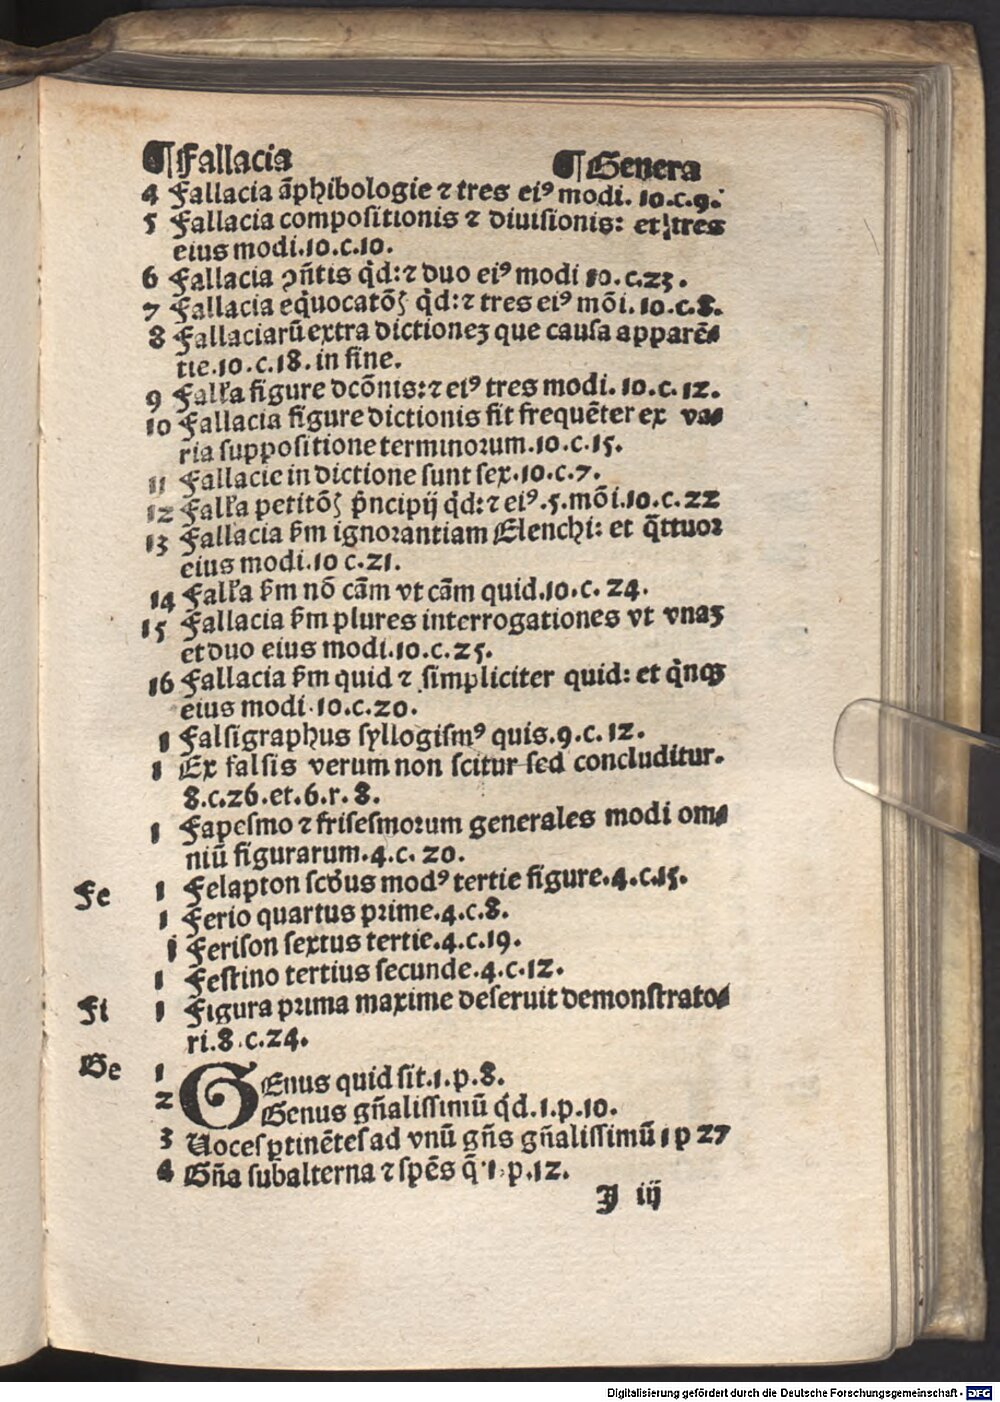 ¶ Fallacia ¶ Genera
4 Fallacia āphibologie ⁊ tres eiꝰ modi. 10.c.9.
5 Fallacia compositionis ⁊ diuisionis: et tres
eius modi.10.c.10.
6 Fallacia ꝯñtis qͥd: ⁊ duo eiꝰ modi 10.c.23.
7 Fallacia eqͥuocatōꝫ qͥd: ⁊ tres eiꝰ mōi. 10.c.8.
8 Fallaciarū extra dictioneꝫ que causa apparē⸗
tie.10.c.18. in fine.
9 Fallꝛa figure dcōnis: ⁊ eiꝰ tres modi. 10.c.12.
10 Fallacia figure dictionis fit frequēter ex va⸗
ria suppositione terminoꝛum.10.c.15.
11 Fallacie in dictione sunt sex.10.c.7.
12 Fallꝛa petitōꝫ pͥncipij qͥd: ⁊ eiꝰ .5. mōi.10.c.22
13 Fallacia ẜm ignoꝛantiam Elenchi: et q̄ttuoꝛ
eius modi.10 c.21.
14 Fallꝛa ẜm nō cām vt cām quid.10.c.24.
15 Fallacia ẜm plures interrogationes vt vnaꝫ
et duo eius modi.10.c.25.
16 Fallacia ẜm quid ⁊ simpliciter quid: et qͥnqꝫ
eius modi.10.c.20.
1 Falsigraphus syllogismꝰ quis.9.c.12.
1 Ex falsis verum non scitur sed concluditur.
8.c.26.et.6.r.8.
1 Fapesmo ⁊ frisesmoꝛum generales modi om⸗
niū figurarum.4.c.20.
Fe 1 Felapton scďus modꝰ tertie figure.4.c.15.
1 Ferio quartus pꝛime.4.c.8.
1 Ferison sextus tertie.4.c.19.
1 Festino tertius secunde.4.c.12.
Fi 1 Figura pꝛima maxime deseruit demonstrato⸗
ri.8.c.24.
Ge 1 GEnus quid sit.1.p.8.
2 Genus gñalissimū qͥd.1.p.10.
3 Uoces ꝑtinētes ad vnū gñs gñalissimū 1 p 27
4 Gña subalterna ⁊ spēs q̄.1.p.12.
J iij
Digitalisierung gefördert durch die Deutsche Forschungsgemeinschaft - DFG